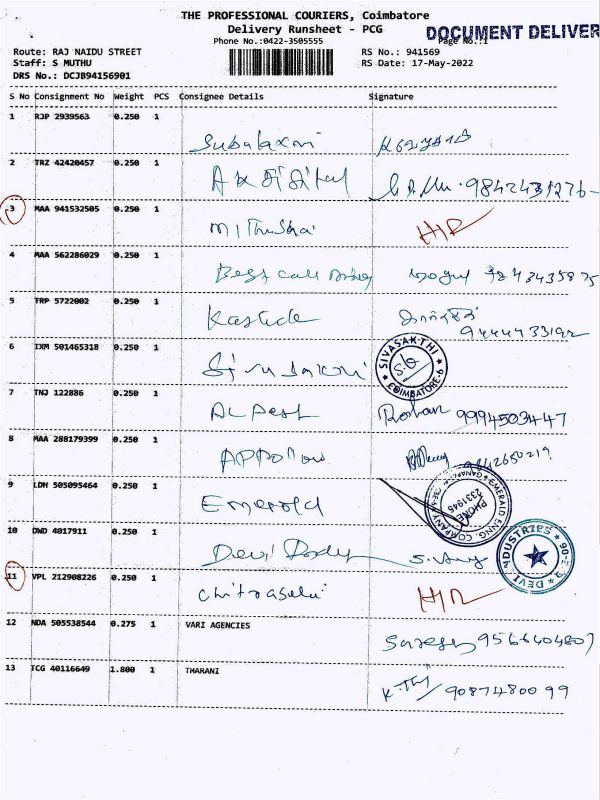 THE PROFESSIONAL COURIERS, Coimbatore
Delivery Runsheet - PCG
DOCUMENT DELIVER
Phone No.:0422-3505555
Page No.:1
Route: RAJ NAIDU STREET
RS No.: 941569
Staff: S MUTHU
RS Date: 17-May-2022
DRS No.: DCJB94156901
S No Consignment No Weight PCS Consignee Details Signature
1 RJP 2939563 0.250 1
Subalaxmi
2 TRZ 42420457 0.250 1
AK digital 9842431276
3 MAA 941532505 0.250 1
Mithusha
4 MAA 562286029 0.250 1
Best Call
5 TRP 5722002 0.250 1
9444433192
6 IXM 501465318 0.250 1
SIVASAKTHI
COIMBATORE-6
7 TNJ 122886 0.250 1
Roshan 9994503447
8 MAA 288179399 0.250 1
Appollow 9842650219
9 LDH 505095464 0.250 1
Emerold
EMERALD ENGG. COMPANY
PHONE
2331945
10 DWD 4017911 0.250 1
Devi
DEVI INDUSTRIES
11 VPL 212908226 0.250 1
Chitraselvi
12 NDA 505538544 0.275 1 VARI AGENCIES
9566404807
13 TCG 40116649 1.800 1 THARANI
9087480099